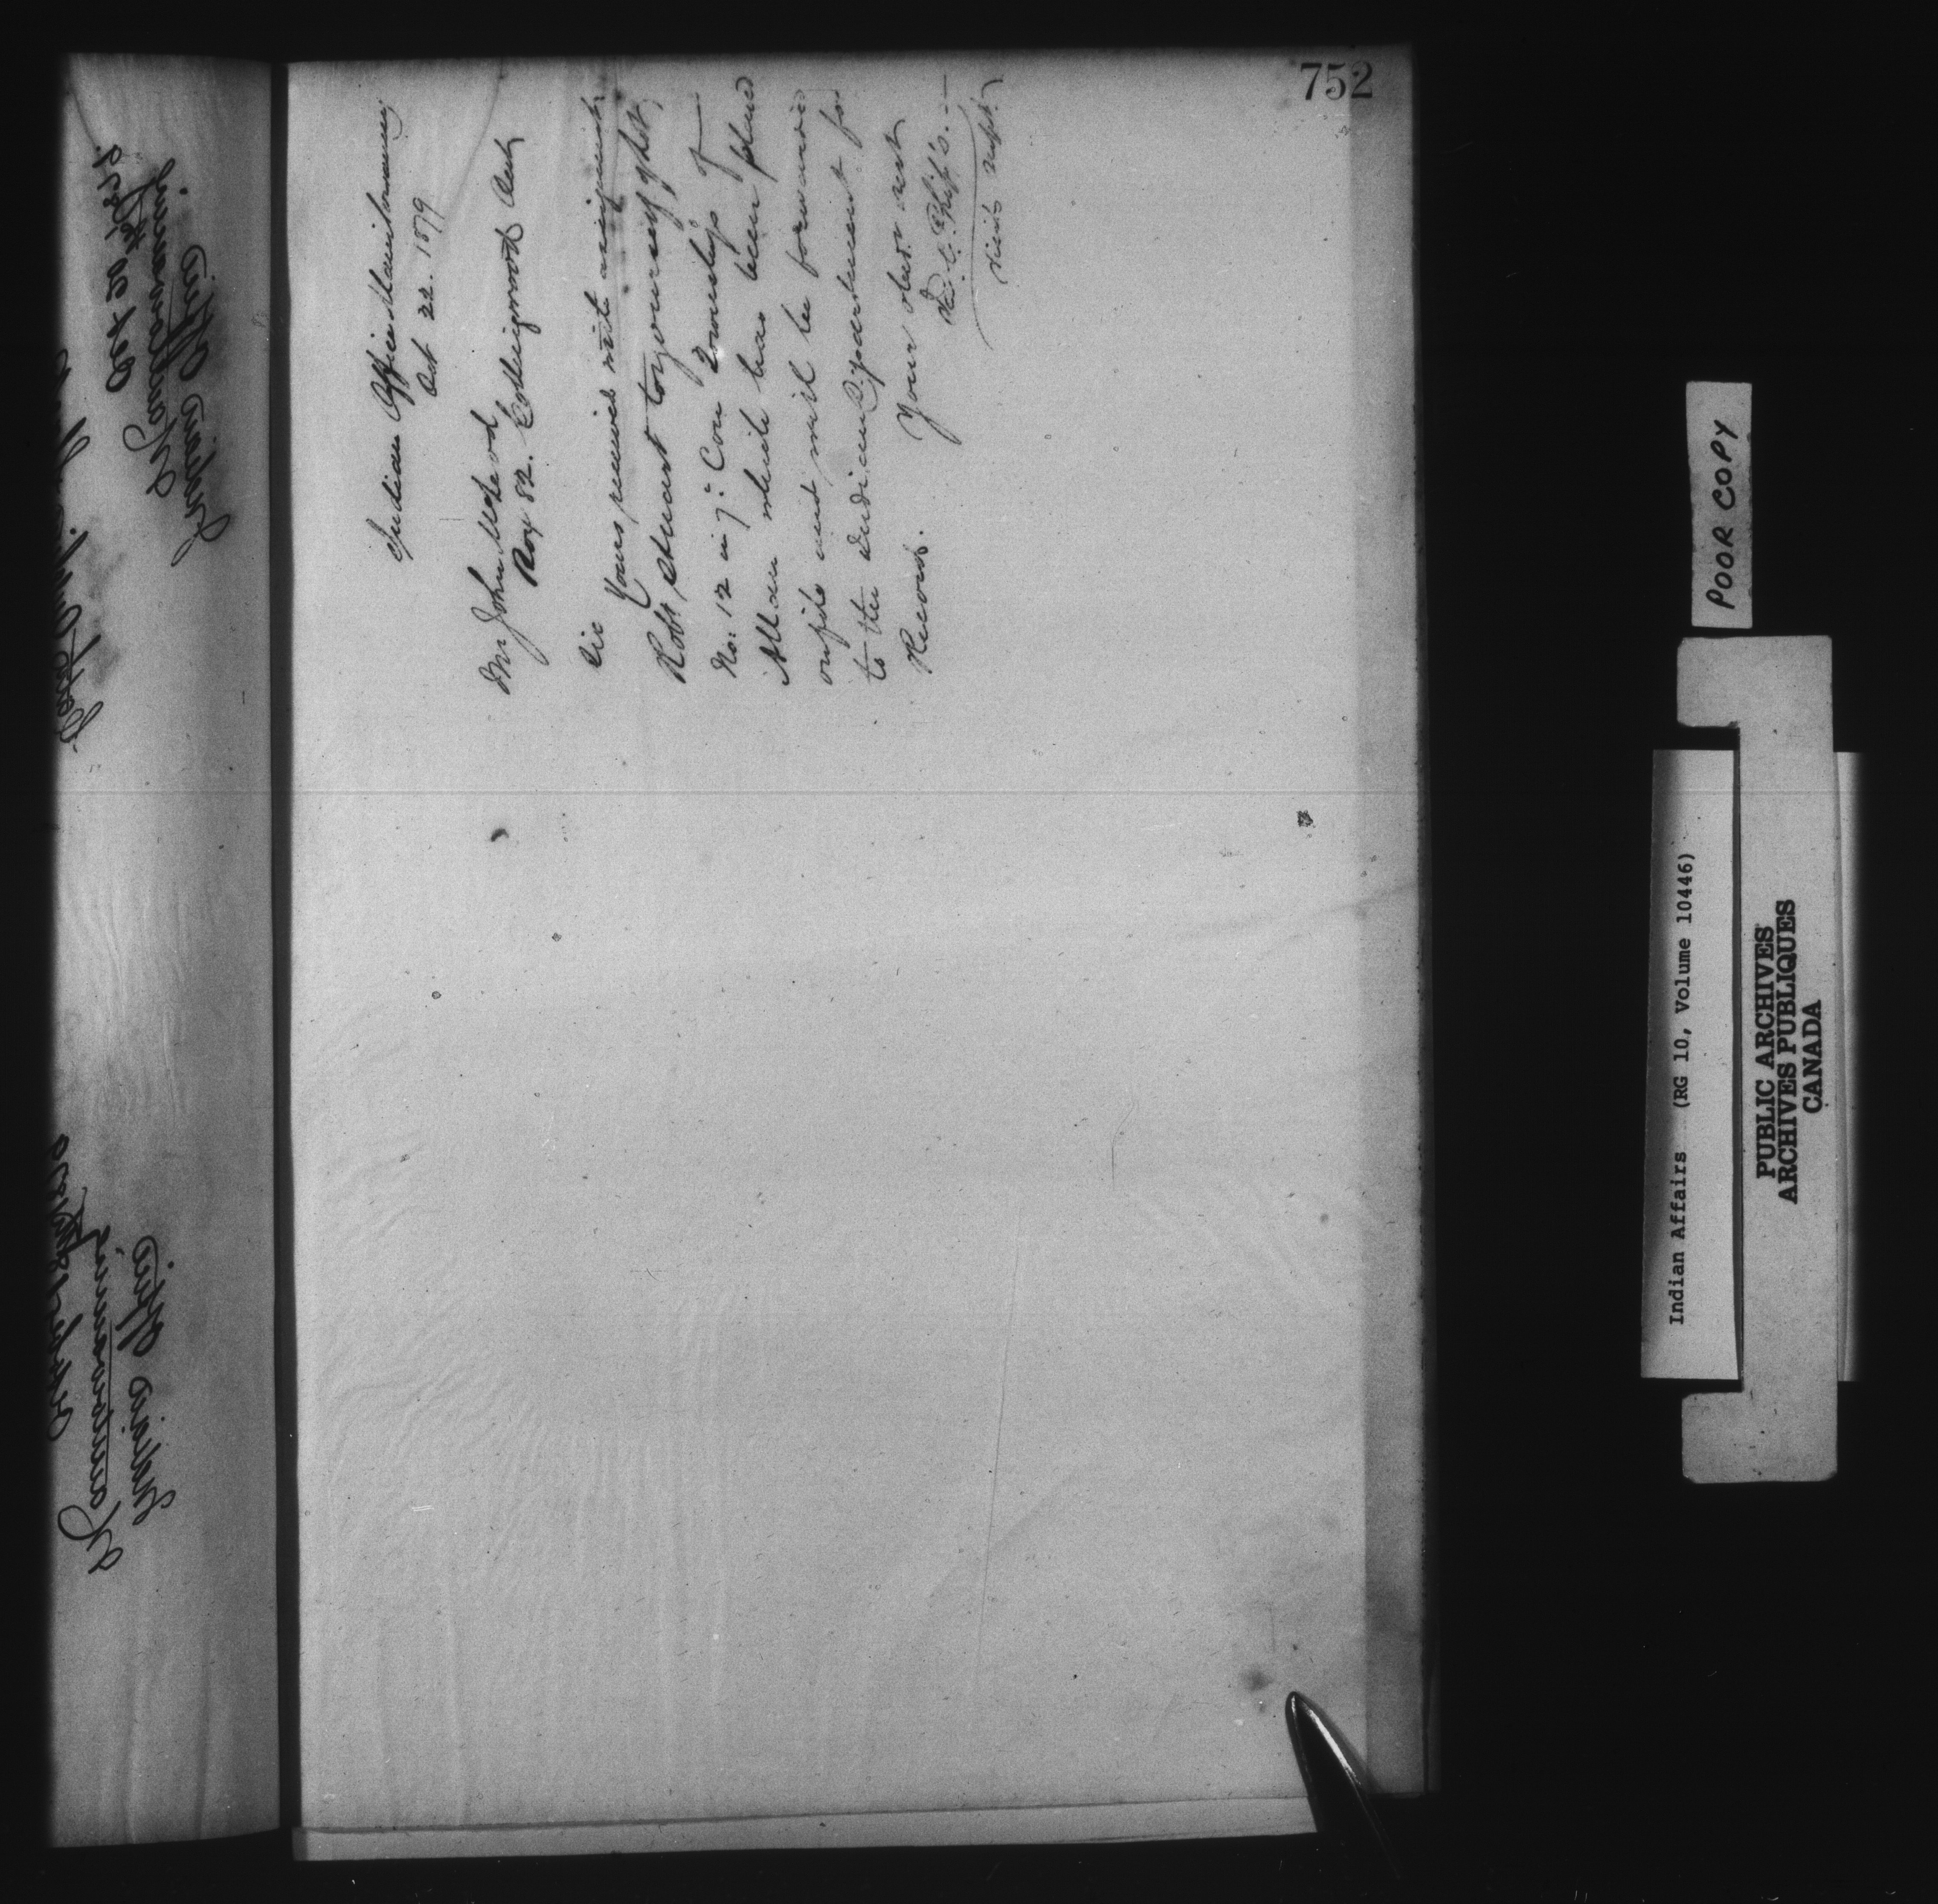 752
Indian Office Manitowaning
Oct 22. 1879
Mr John McLeod
Box 82. Collingwood Ont
Sir
Yours received with assignment
Robt Stuart to yourself of Lot
No: 12 in 7: Con Township of
Allan which has been placed
on file and will be forwarded
to the Indian Department for
Record.
Your obedt servt
J. C. Phipps.
Visit. Supt.
Indian Office
Manitowaning
Oct 20 1879.
Indian Office
Manitowaning
POOR COPY
Indian Affairs (RG 10, Volume 10446)
PUBLIC ARCHIVES
ARCHIVES PUBLIQUES
CANADA